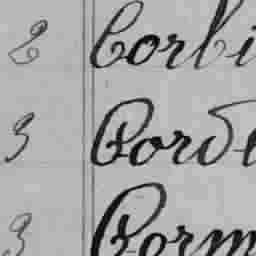 2 Corbi
3 Corde
3 Corm